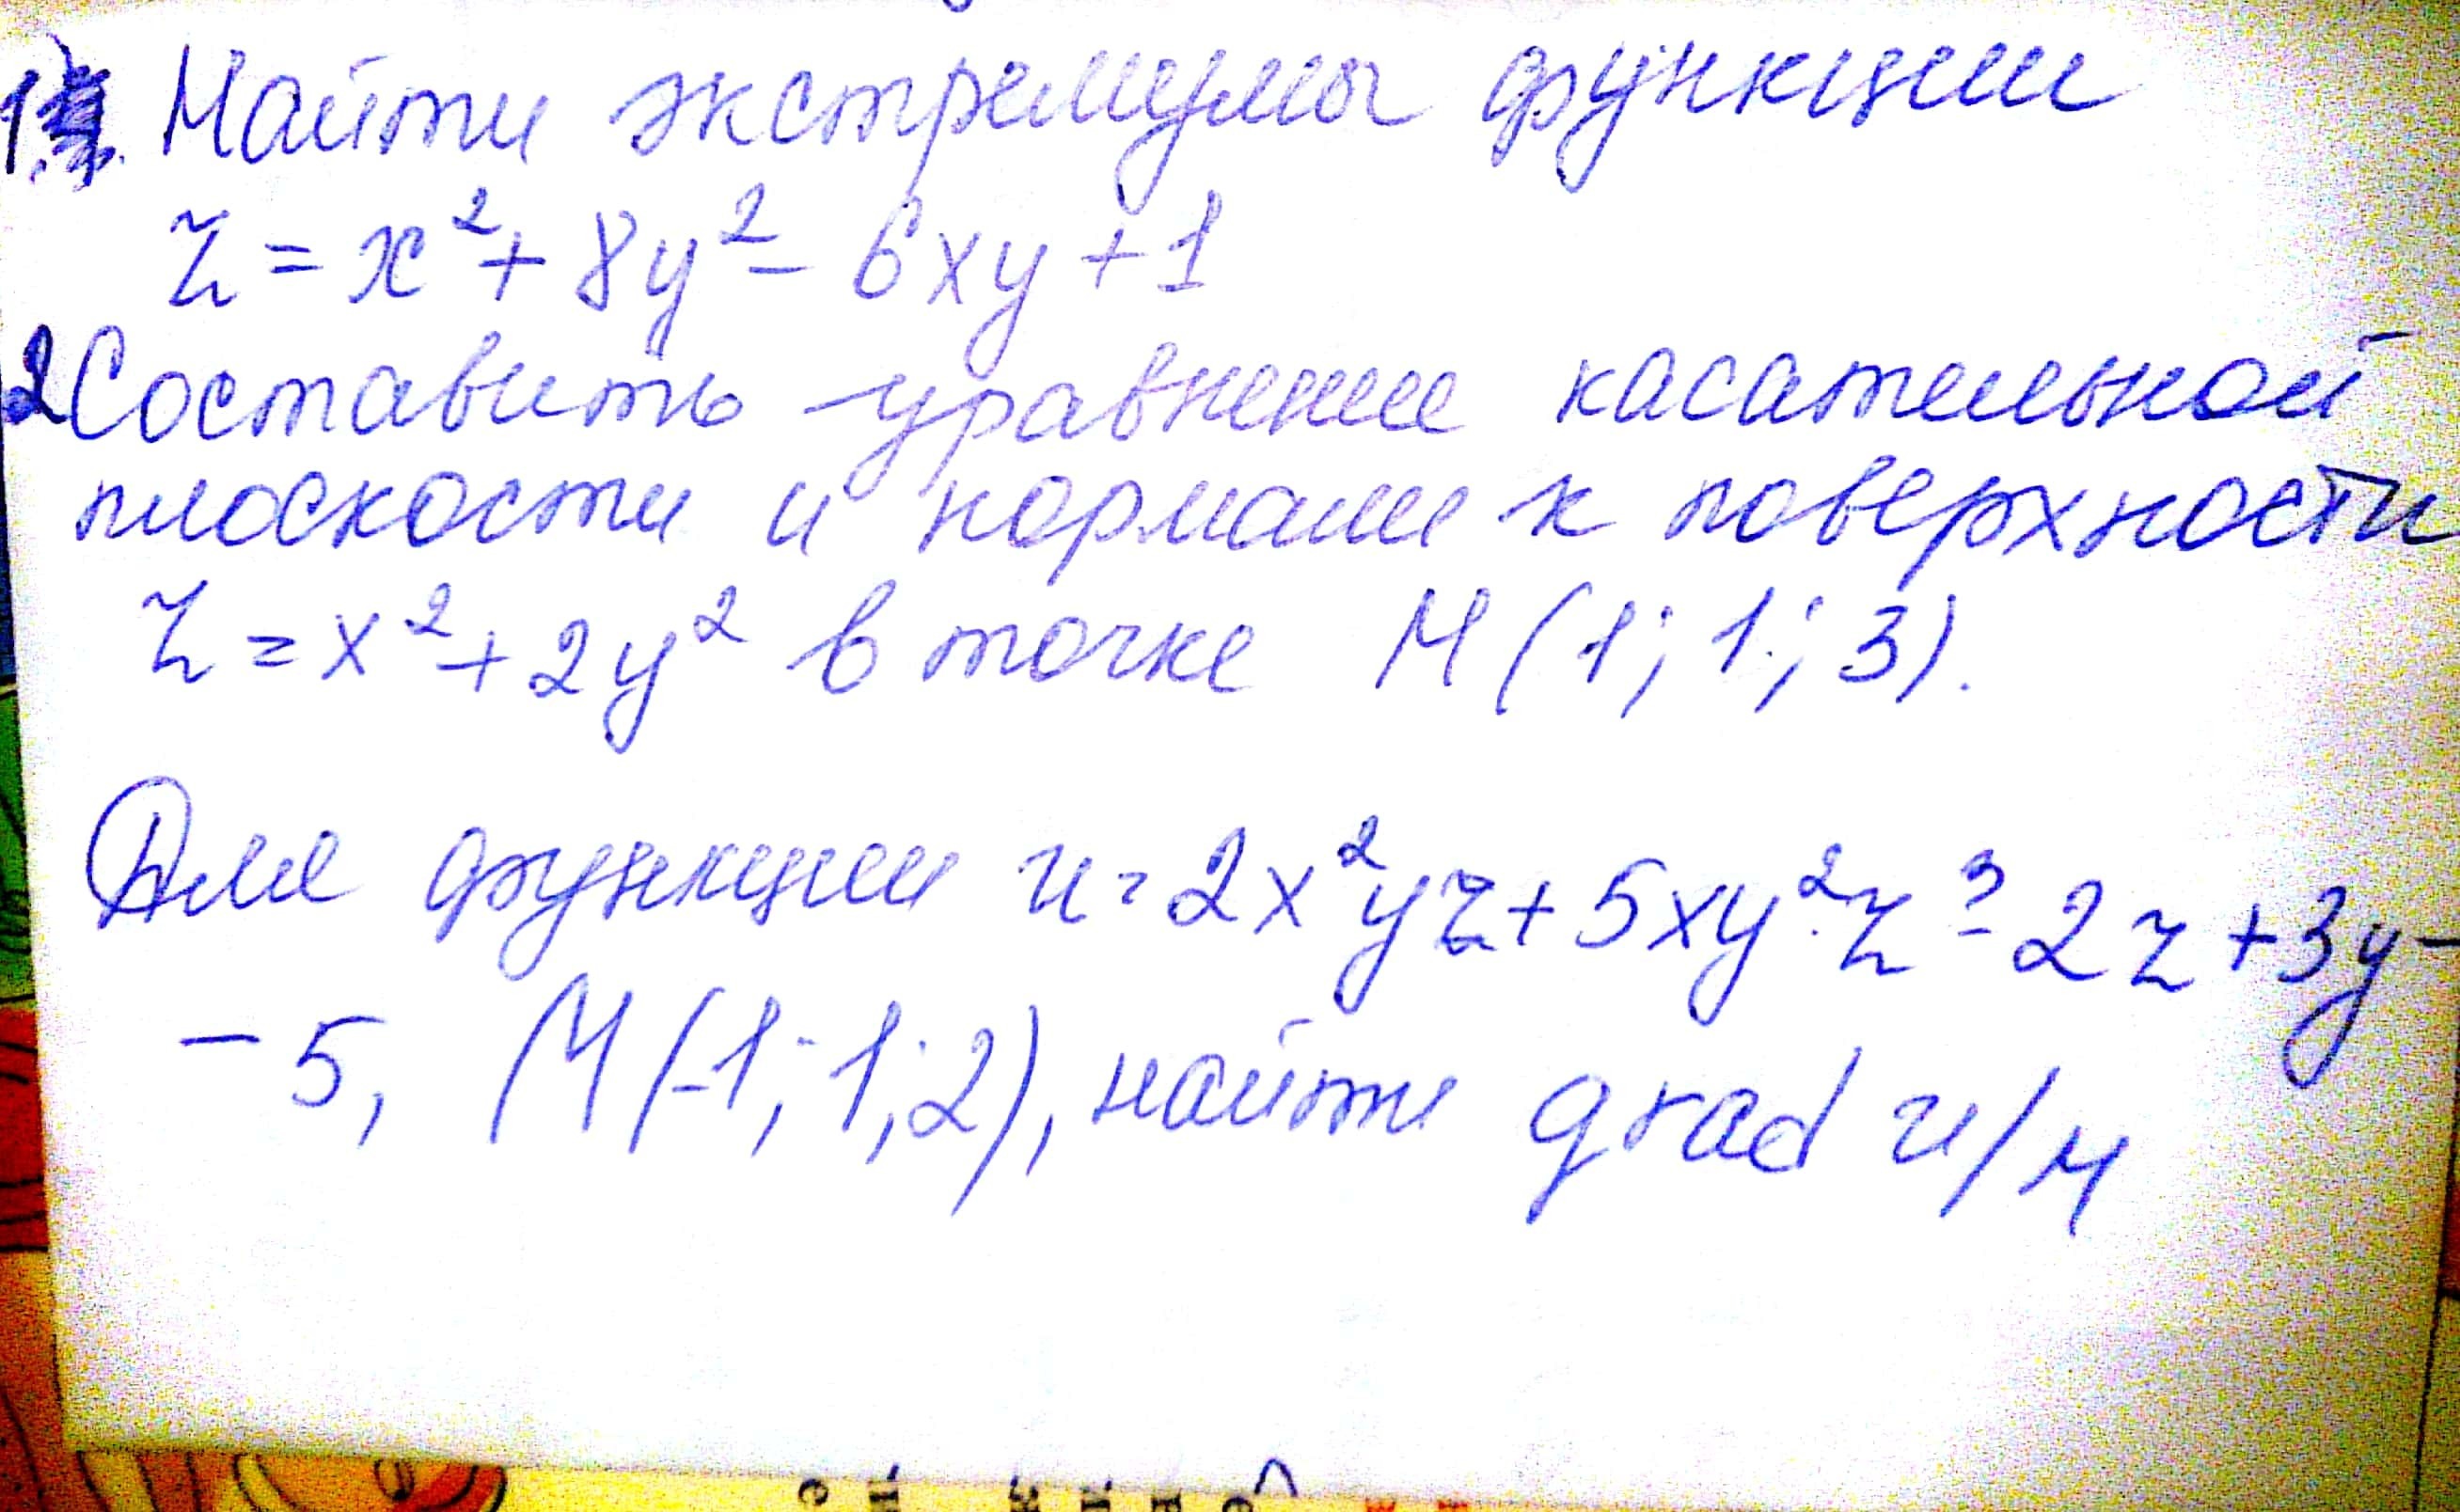 1. Найти экстремумы функции
z = x² + 8y² - 6xy + 1
2 Составить уравнение касательной
плоскости и нормали к поверхности
z = x² + 2y² в точке М (1; 1; 3).
Для функции u = 2x²yz + 5xy²z² - 2z + 3y -
- 5, М (-1; 1; 2), найти grad u/м